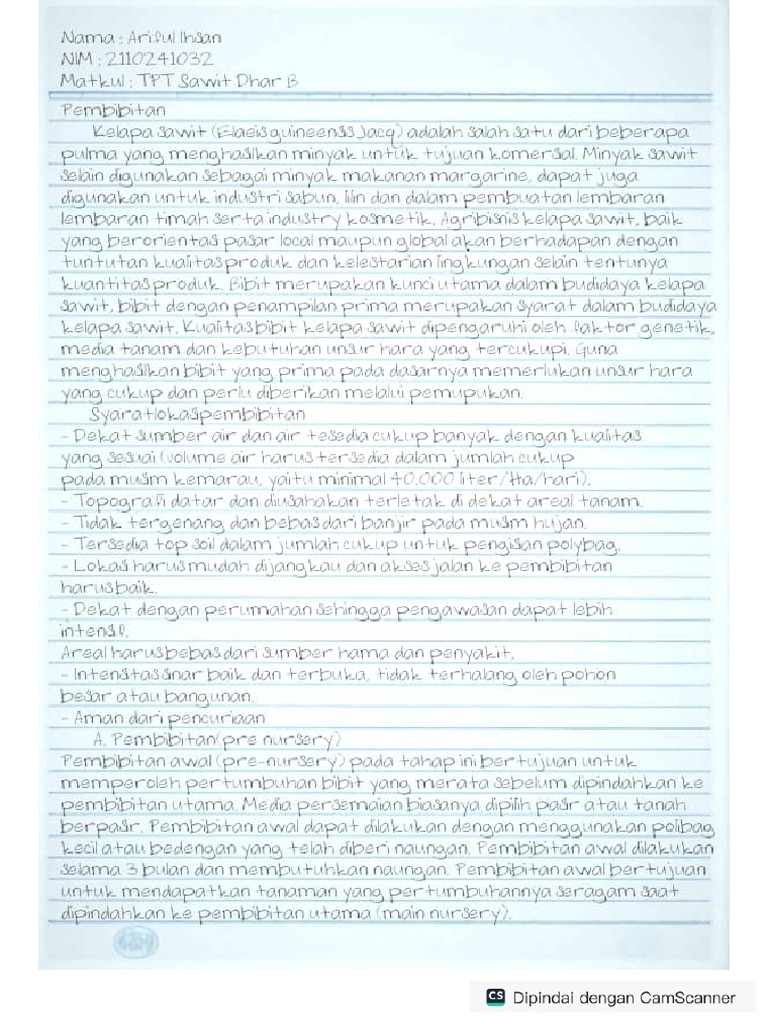 Nama : Ariful Ihsan
NIM : 2110241032
Matkul : TPT Sawit Dhar B
Pembibitan
Kelapa sawit (Elaeis guineenss Jacq) adalah salah satu dari beberapa
pulma yang menghasilkan minyak untuk tujuan komersal. Minyak sawit
selain digunakan sebagai minyak makanan margarine, dapat juga
digunakan untuk industri sabun, lilin dan dalam pembuatan lembaran
lembaran timah serta industry kosmetik. Agribisnis kelapa sawit, baik
yang berorientas pasar local maupun global akan berhadapan dengan
tuntutan kualitas produk dan kelestarian lingkungan selain tentunya
kuantitas produk. Bibit merupakan kunci utama dalam budidaya kelapa
sawit, bibit dengan penampilan prima merupakan syarat dalam budidaya
kelapa sawit. Kualitas bibit kelapa sawit dipengaruhi oleh faktor genetik,
media tanam dan kebutuhan unsur hara yang tercukupi. Guna
menghasilkan bibit yang prima pada dasarnya memerlukan unsur hara
yang cukup dan perlu diberikan melalui pemupukan.
Syarat lokas pembibitan
- Dekat sumber air dan air tesedia cukup banyak dengan kualitas
yang sesuai (volume air harus tersedia dalam jumlah cukup
pada musim kemarau, yaitu minimal 40.000 liter/Ha/hari).
- Topografi datar dan diusahakan terletak di dekat areal tanam.
- Tidak tergenang dan bebas dari banjir pada musim hujan.
- Tersedia top soil dalam jumlah cukup untuk pengisan polybag.
- Lokas harus mudah dijangkau dan akses jalan ke pembibitan
harus baik.
- Dekat dengan perumahan sehingga pengawasan dapat lebih
intensif.
Areal harus bebas dari sumber hama dan penyakit.
- Intenstas sinar baik dan terbuka, tidak terhalang oleh pohon
besar atau bangunan.
- Aman dari pencuriaan
A. Pembibitan (pre nursery)
Pembibitan awal (pre-nursery) pada tahap ini bertujuan untuk
memperoleh pertumbuhan bibit yang merata sebelum dipindahkan ke
pembibitan utama. Media persemaian biasanya dipilih pasir atau tanah
berpasir. Pembibitan awal dapat dilakukan dengan menggunakan polibag
kecil atau bedengan yang telah diberi naungan. Pembibitan awal dilakukan
selama 3 bulan dan membutuhkan naungan. Pembibitan awal bertujuan
untuk mendapatkan tanaman yang pertumbuhannya seragam saat
dipindahkan ke pembibitan utama (main nursery).
CS Dipindai dengan CamScanner